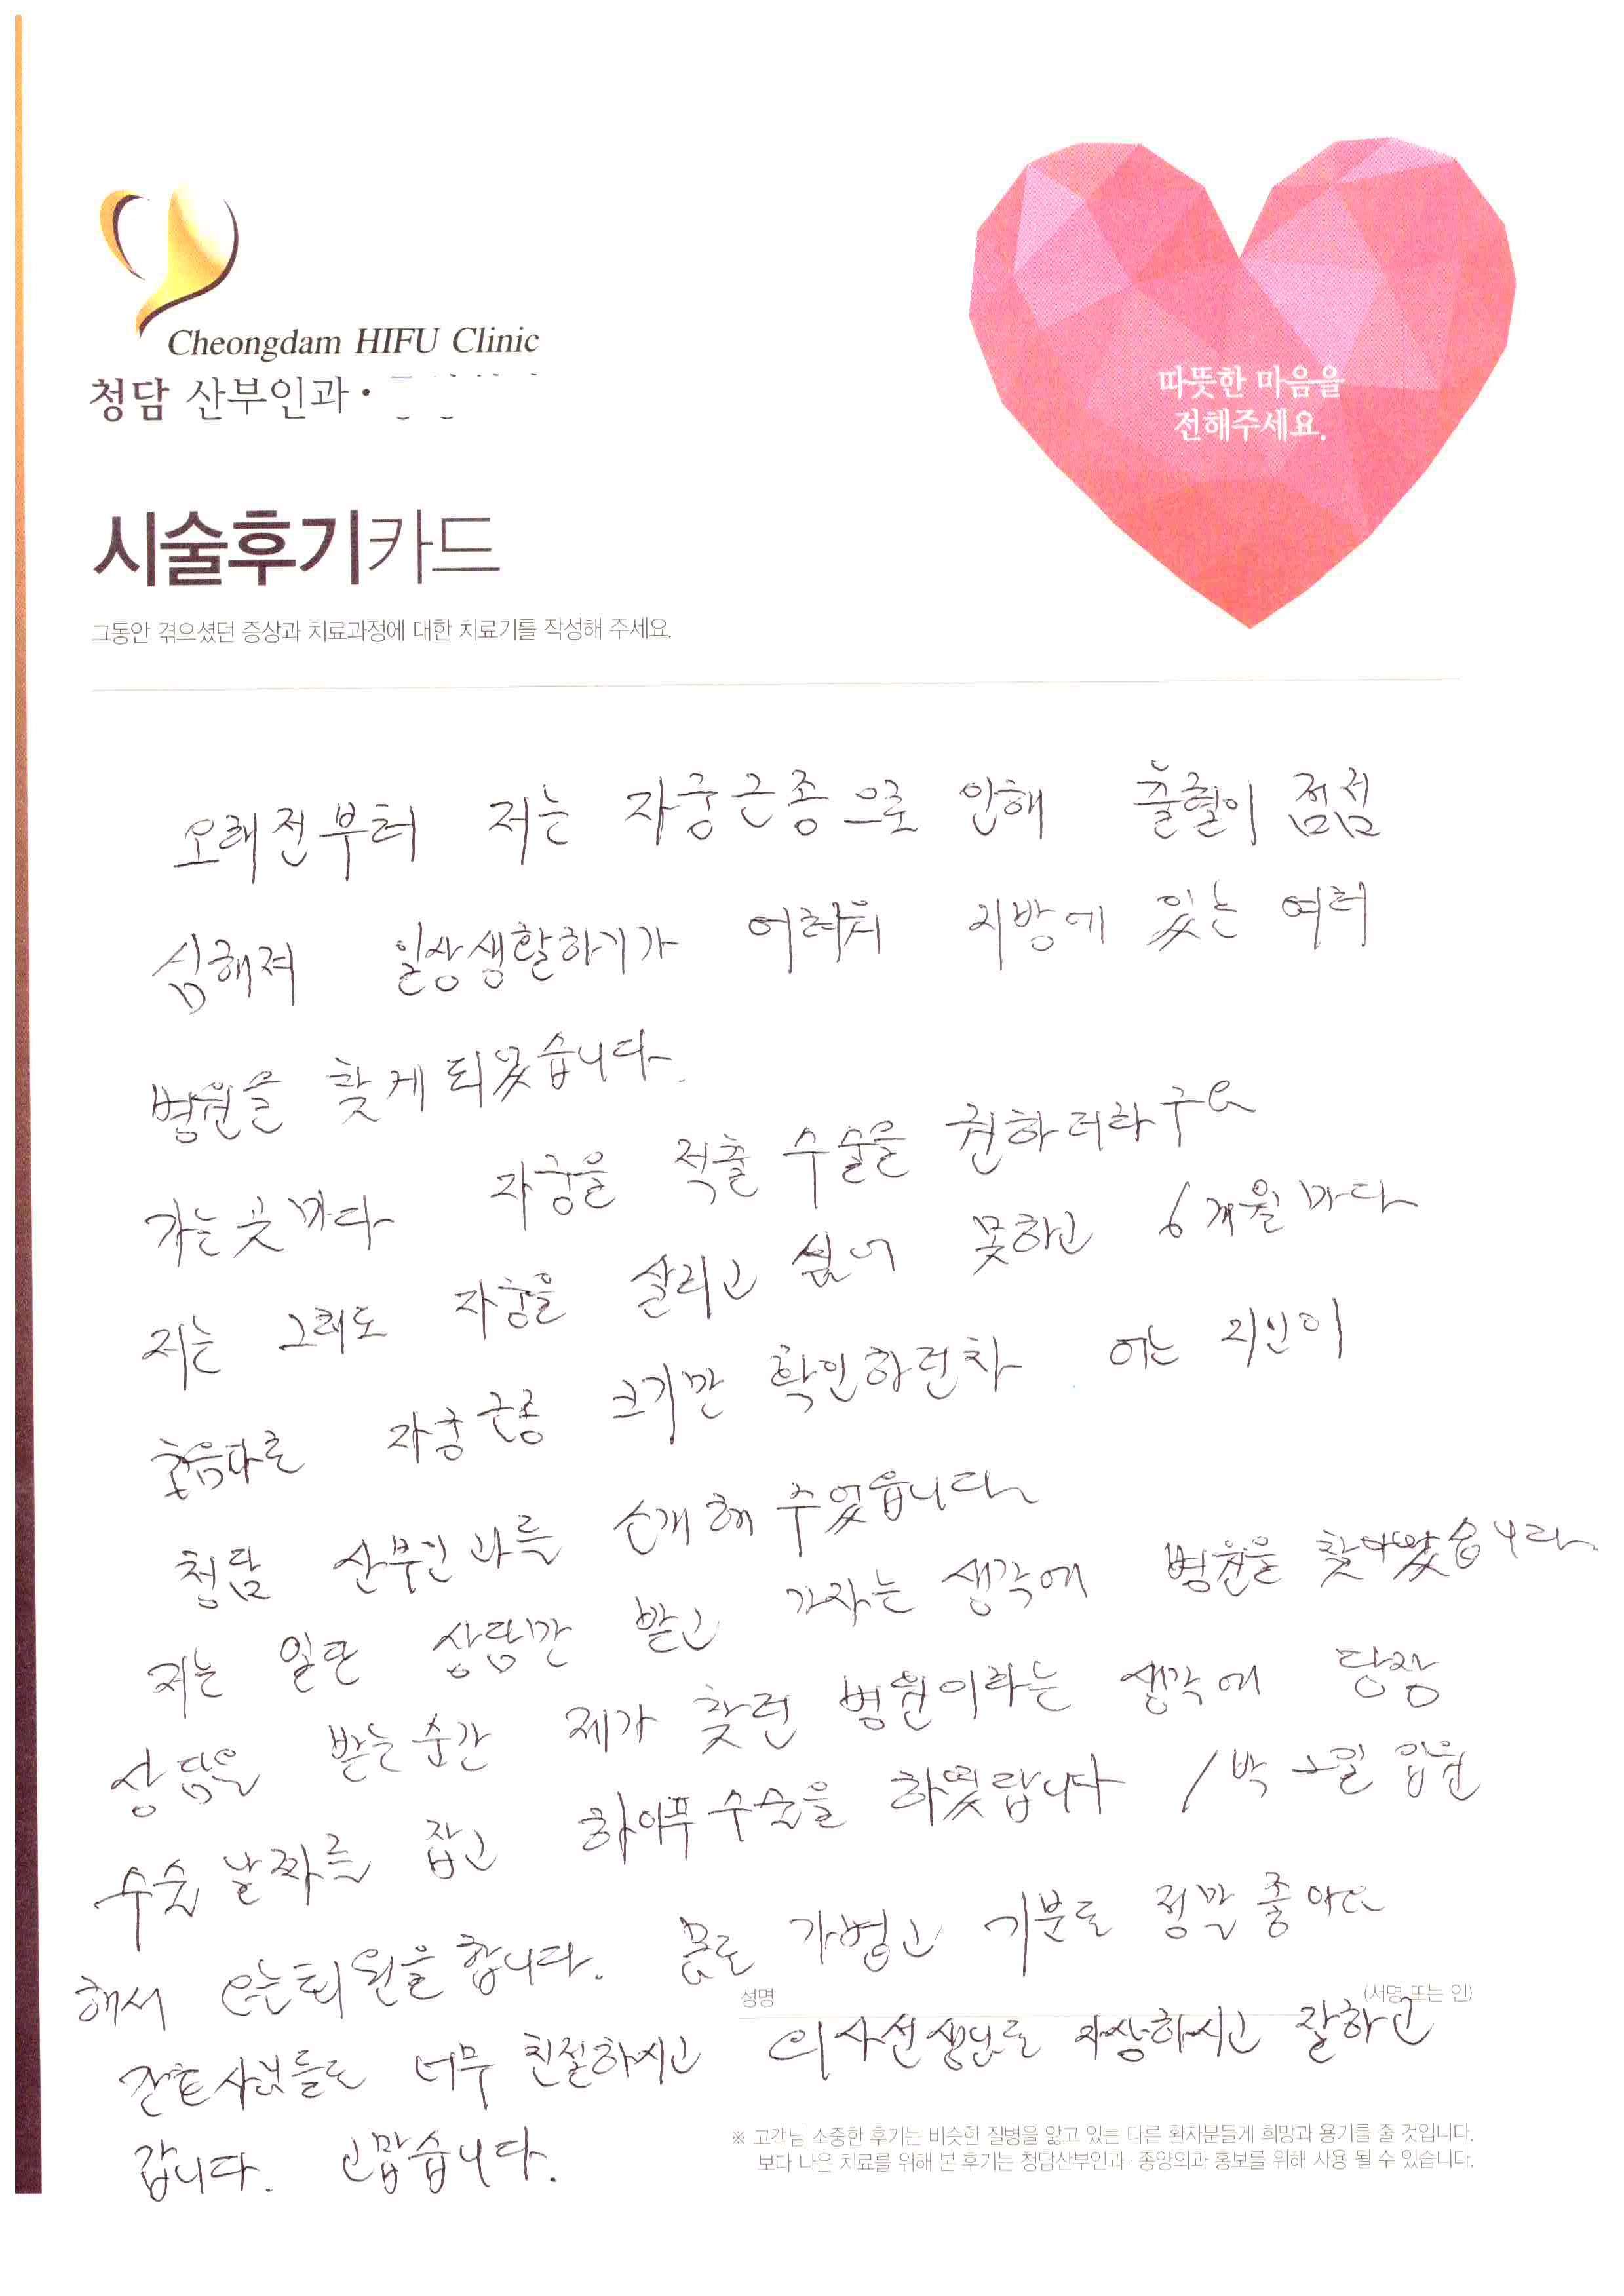 Cheongdam HIFU Clinic
청담 산부인과·
따뜻한 마음을
전해주세요.
시술후기카드
그동안 겪으셨던 증상과 치료과정에 대한 치료기를 작성해 주세요.
오래전부터 저는 자궁근종으로 인해 출혈이 점점
심해져 일상생활하기가 어려워 지방에 있는 여러
병원을 찾게 되었습니다.
가는곳마다 자궁을 적출 수술을 권하더라구요
저는 그래도 자궁을 살리고 싶어 못하고 6개월마다
초음파로 자궁근종 크기만 확인하던차 아는 지인이
청담 산부인과를 소개해 주었읍니다
저는 일단 상담만 받고 가자는 생각에 병원을 찾아왔습니다.
상담을 받는순간 제가 찾던 병원이라는 생각에 당장
수술 날짜를 잡고 하이푸수술을 하였답니다 1박 2일 입원
해서 오는퇴원을 합니다. 몸도 가볍고 기분도 정말 좋아요
성명 (서명 또는 인)
간호사님들도 너무 친절하시고 의사선생님도 자상하시고 잘하고
갑니다. 고맙습니다.
※ 고객님 소중한 후기는 비슷한 질병을 앓고 있는 다른 환자분들게 희망과 용기를 줄 것입니다.
보다 나은 치료를 위해 본 후기는 청담산부인과·종양외과 홍보를 위해 사용 될 수 있습니다.